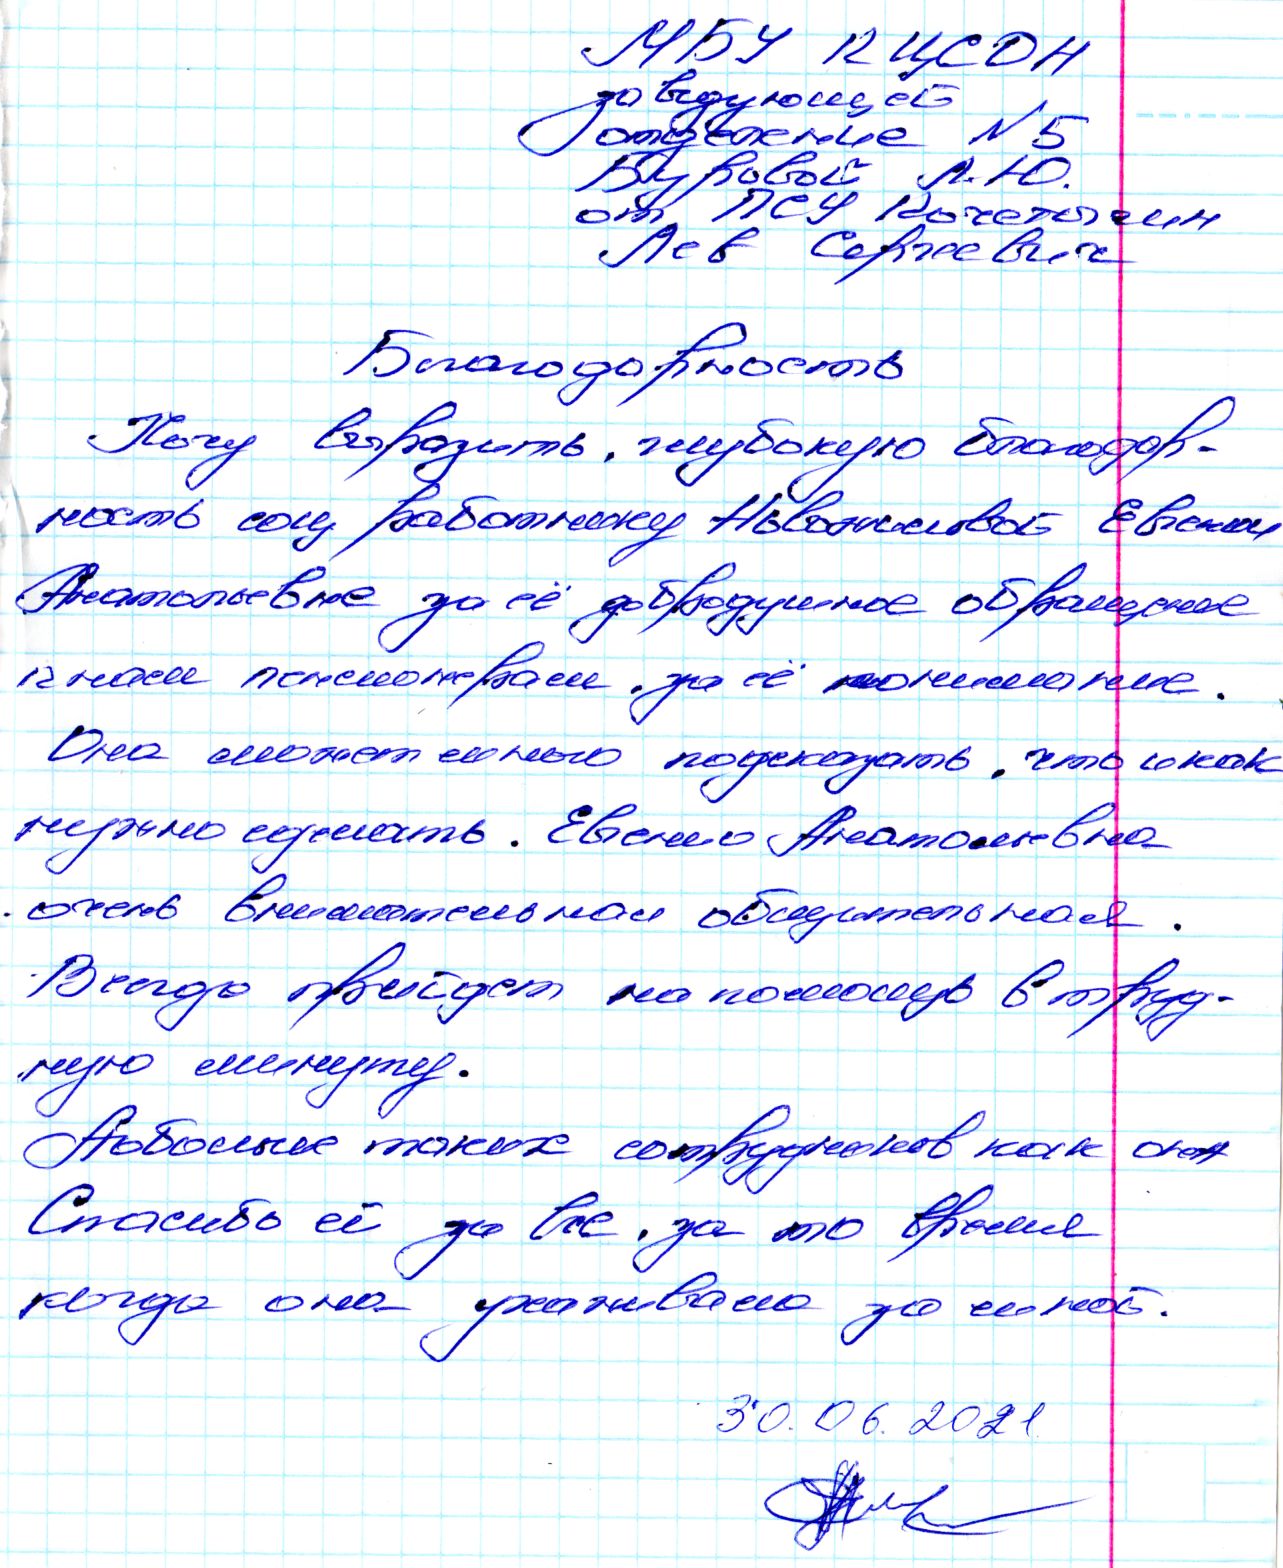 МБУ КЦСОН
заведующей
отделение N5
Буровой Л.Ю.
от ПСУ
Лев Сергеевич
Благодарность
Хочу выразить, глубокую благодар-
ность соц работнику Новожиловой Евгении
Анатольевне за её добродушное обращение
к нам пенсионерам, за её понимание.
Она может много подсказать, что и как
нужно сделать. Евгения Анатольевна
очень внимательная общительная.
Всегда прийдет на помощь в труд-
ную минуту.
Побольше таких сотрудников как она
Спасибо ей за все, за то время
когда она ухаживала за мной.
30.06.2021